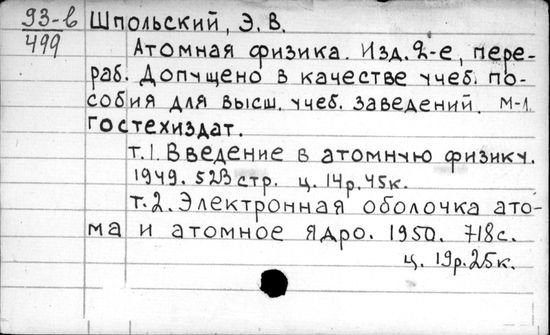 93-6 Шпольский, Э. В.
499
Атомная физика. Изд. 2-е, пере-
раб. Допущено в качестве учеб. по-
собия для высш. учеб. заведений. М-Л.
Гостехиздат.
т.1. Введение в атомную физику.
1949. 523 стр. ц. 14р.45к.
т.2. Электронная оболочка ато-
ма и атомное ядро. 1950. 718с.
ц. 19р.25к.